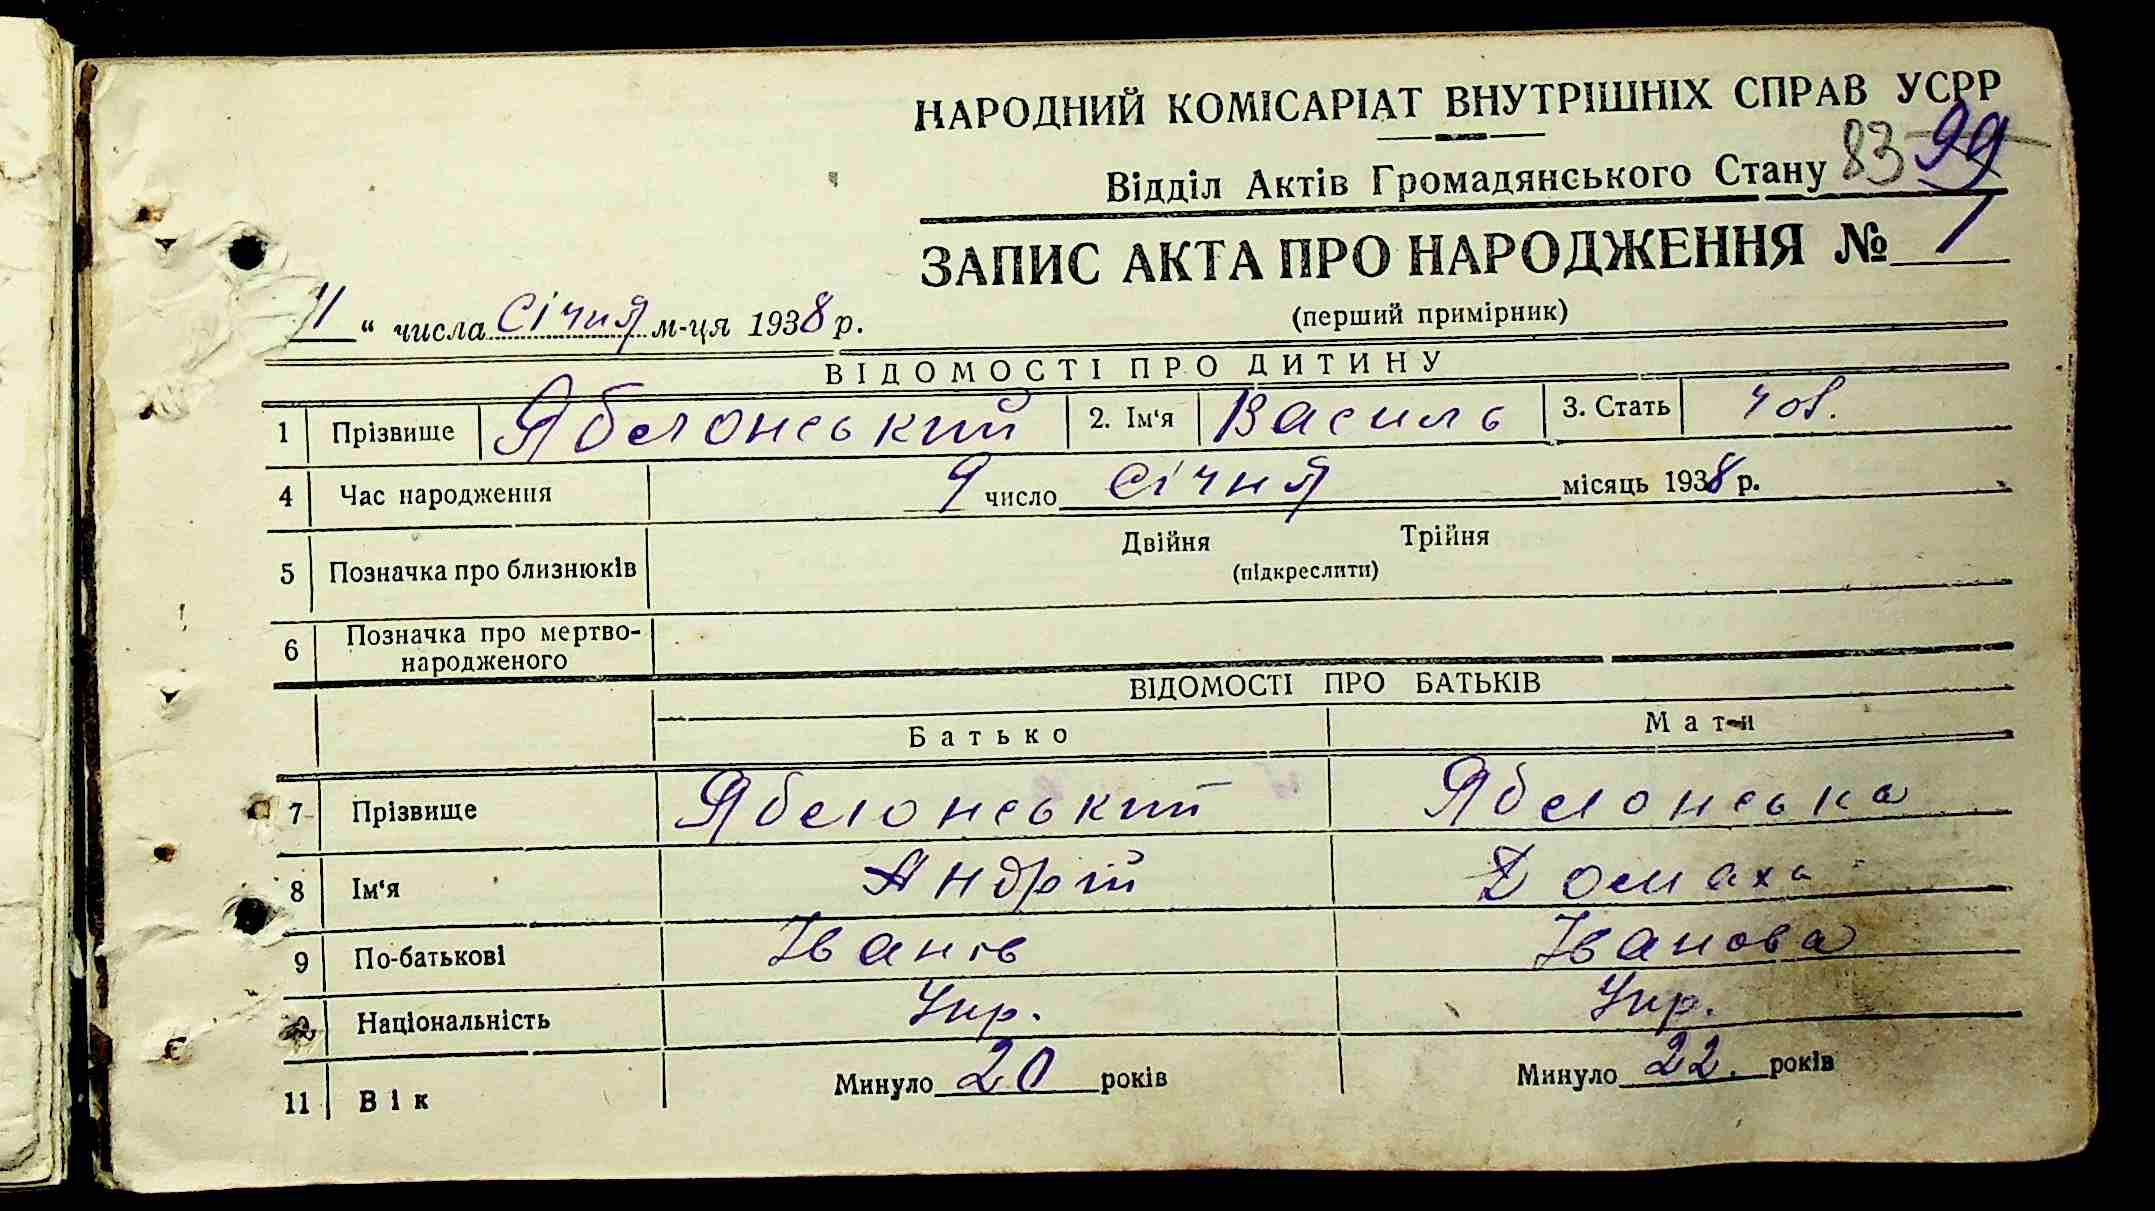 НАРОДНИЙ КОМІСАРІАТ ВНУТРІШНІХ СПРАВ УСРР
Відділ Актів Громадянського Стану 83 99
ЗАПИС АКТА ПРО НАРОДЖЕННЯ № 1
(перший примірник)
11 “ числа Січня м-ця 1938 р.
ВІДОМОСТІ ПРО ДИТИНУ
1 Прізвище Яблонський 2. Ім‘я Василь 3. Стать чол.
4 Час народження 9 число січня місяць 1938 р.
5 Позначка про близнюків Двійня Трійня
(підкреслити)
6 Позначка про мертво-
народженого
ВІДОМОСТІ ПРО БАТЬКІВ
Батько Мати
7 Прізвище Яблонський Яблонська
8 Ім‘я Андрій Домаха
9 По-батькові Іванів Іванова
Національність Укр. Укр.
11 Вік Минуло 20 років Минуло 22. років